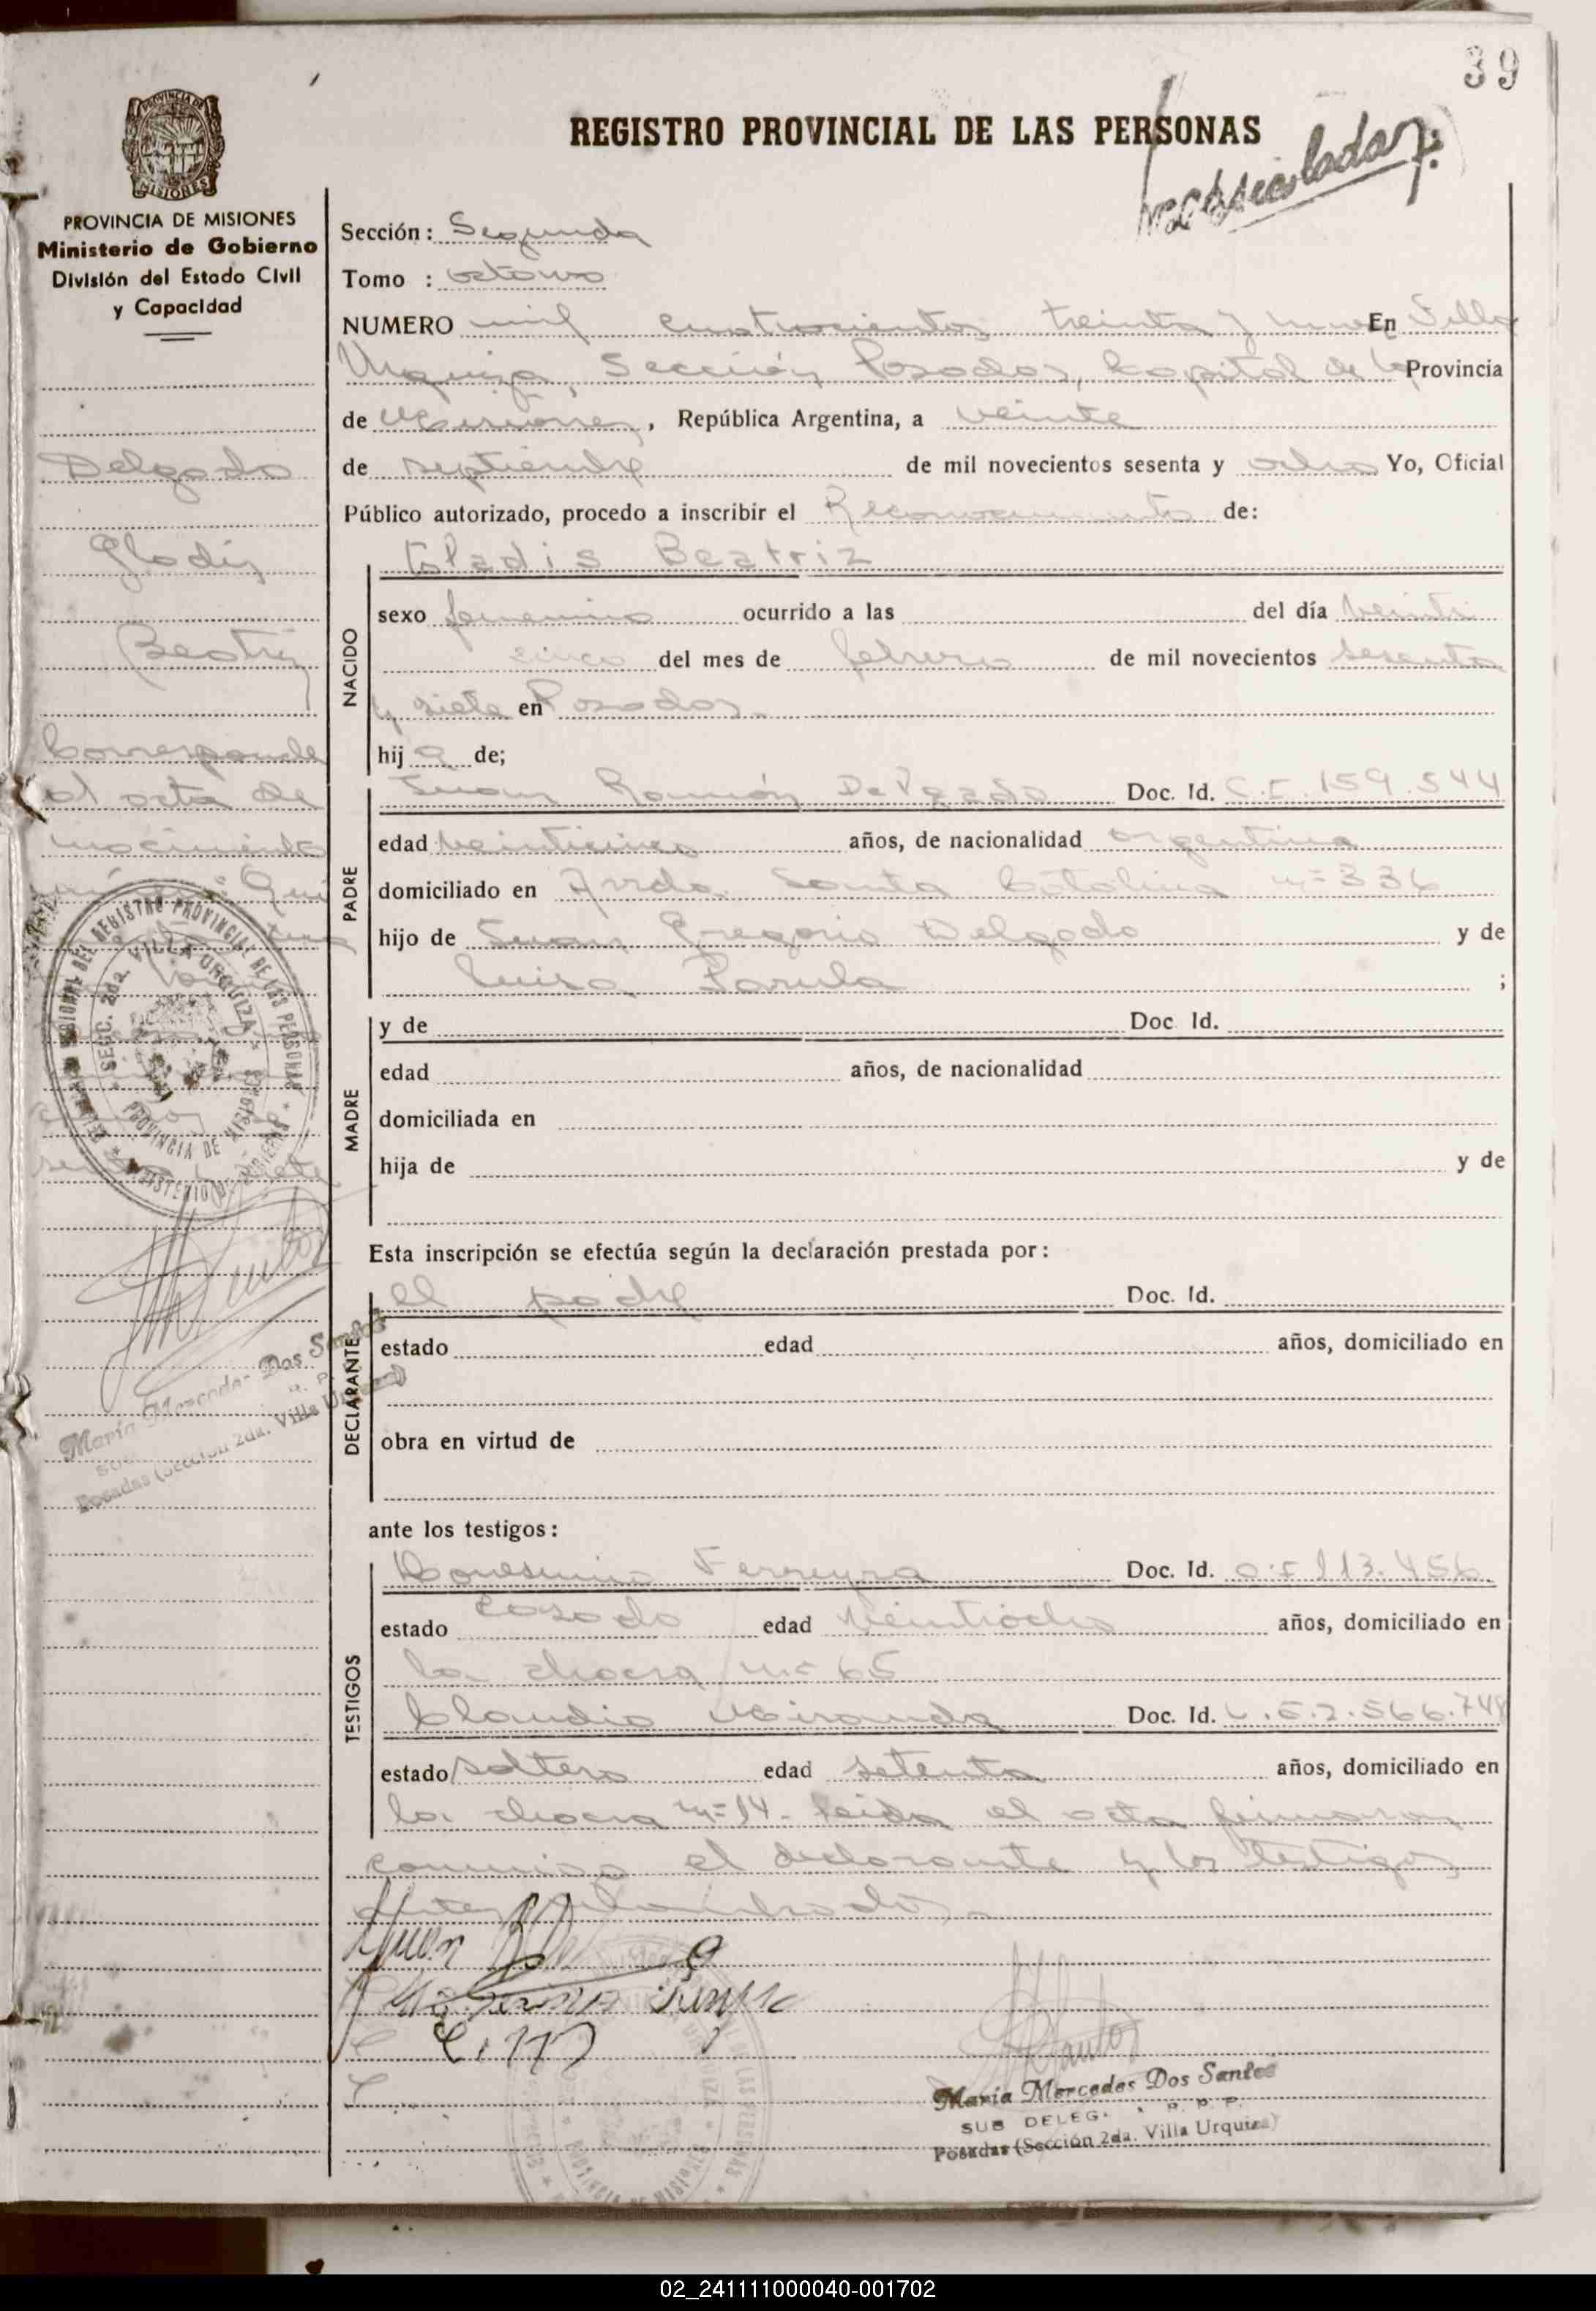 39
REGISTRO PROVINCIAL DE LAS PERSONAS
PROVINCIA DE MISIONES
Ministerio de Gobierno
División del Estado Civil
y Capacidad
Delgado
Gladis
Beatriz
Corresponde
al acta de
nacimiento
Sección: Segunda
Tomo : octavo
NUMERO mil cuatrocientos treinta y nueve En Villa
Urquiza, Sección Posadas, Capital de la Provincia
de Misiones, República Argentina, a veinte
de septiembre de mil novecientos sesenta y ocho Yo, Oficial
Público autorizado, procedo a inscribir el Reconocimiento de:
NACIDO
Gladis Beatriz
sexo femenino ocurrido a las del día veinti
cinco del mes de febrero de mil novecientos sesenta
y siete en Posadas.
hij a de;
PADRE
Juan Ramón Delgado Doc. Id. C.I. 159.544
edad veinticinco años, de nacionalidad argentina
domiciliado en Avda. Santa Catalina nº 336
hijo de Juan Gregorio Delgado y de
Luisa ;
MADRE
y de Doc. Id.
edad años, de nacionalidad
domiciliada en
hija de y de
Esta inscripción se efectúa según la declaración prestada por:
DECLARANTE
el padre Doc. Id.
estado edad años, domiciliado en
obra en virtud de
ante los testigos:
TESTIGOS
Ferreyra Doc. Id. 113.456
estado casado edad veintiocho años, domiciliado en
la chacra nº 65
Claudio Miranda Doc. Id. L.E. 2.566.748
estado soltero edad setenta años, domiciliado en
la chacra nº 14 - leida el acta firmaron
conmigo el declarante y los testigos
antes nombrados.
María Mercedes Dos Santos
SUB DELEG. R. P. P.
Posadas (Sección 2da. Villa Urquiza)
María Mercedes Dos Santos
Posadas (Sección 2da. Villa Urquiza)
SECC. 2da. VILLA URQUIZA
PROVINCIA DE MISIONES
02_241111000040-001702